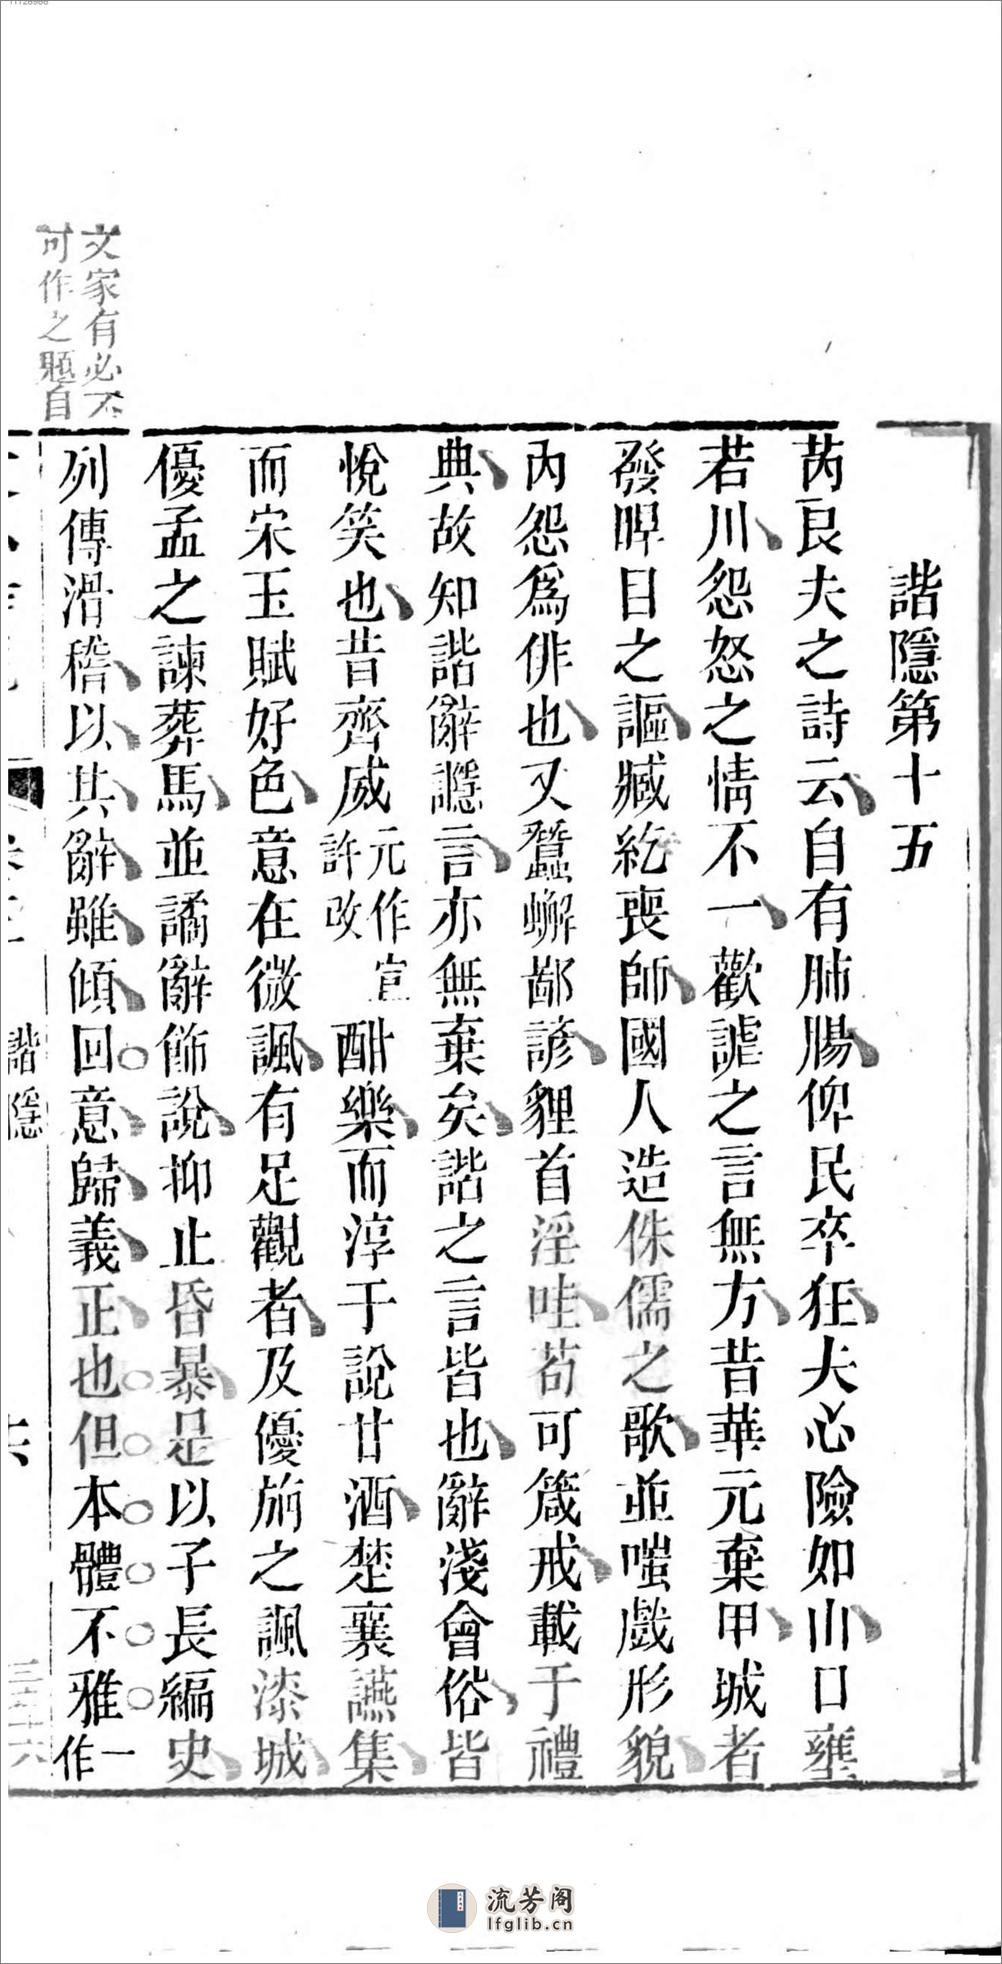 諧隱第十五
芮良夫之詩云自有肺腸俾民卒狂夫心險如山口壅
若川怨怒之情不一歡謔之言無方昔華元棄甲城者
發睅目之謳臧紇喪師國人造侏儒之歌並嗤戲形貌
內怨爲俳也又蠶蠏鄙諺貍首淫哇苟可箴戒載于禮
典故知諧辭讔言亦無棄矣諧之言皆也辭淺會俗皆
悅笑也昔齊威元作宣許改酣樂而淳于說甘酒楚襄讌集
而宋玉賦好色意在微諷有足觀者及優旃之諷漆城
優孟之諫葬馬並譎辭飾說抑止昏暴是以子長編史
列傳滑稽以其辭雖傾回意歸義正也但本體不雅一作
文家有必不
可作之題自
諧隱
流芳阁
lfglib.cn
11128988